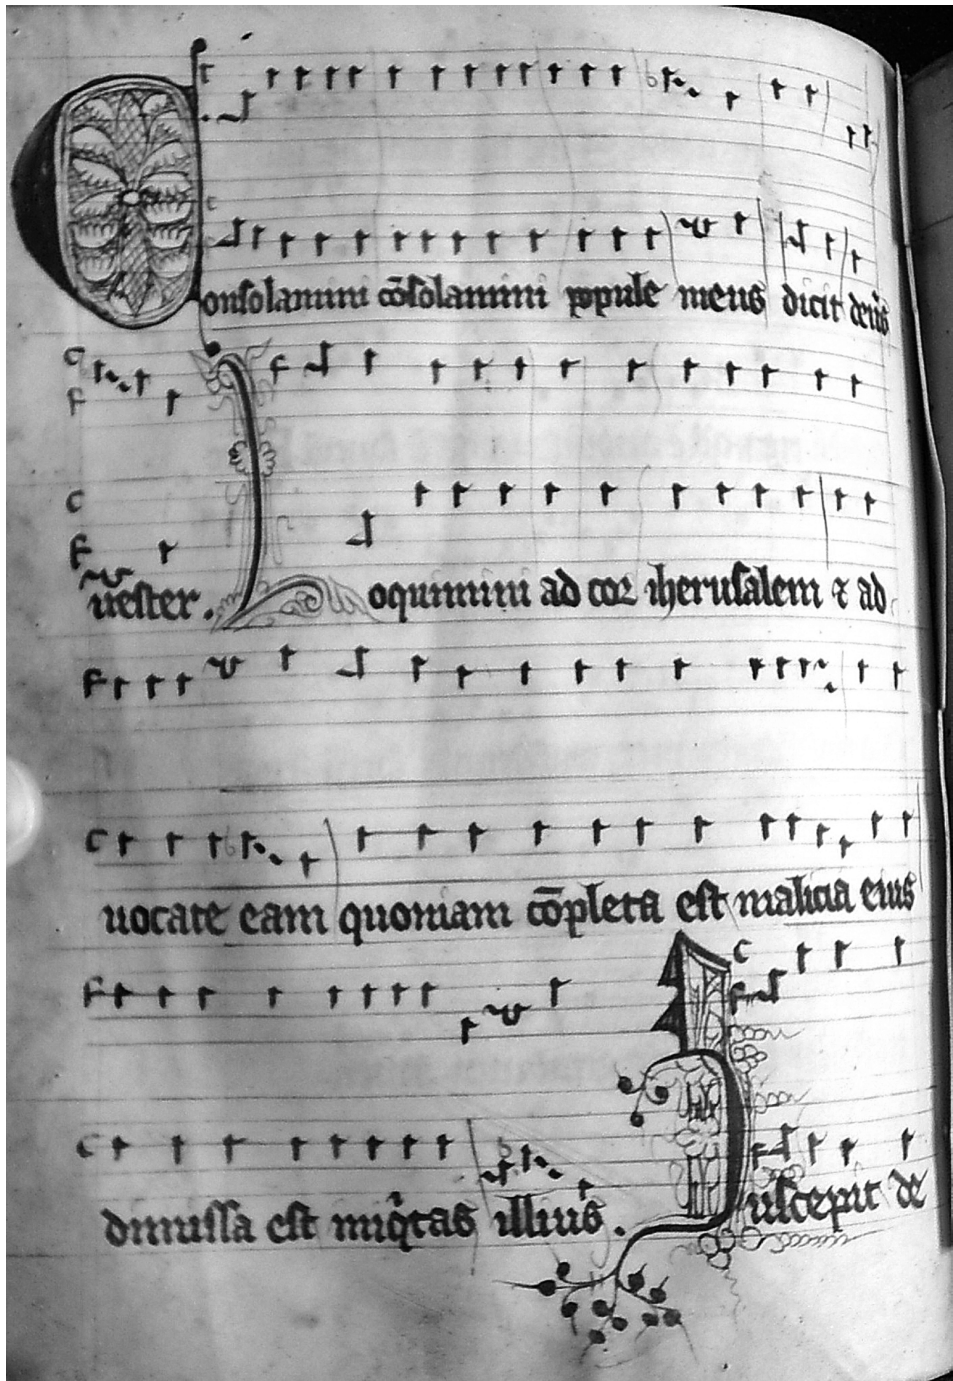 Consolamini cōsolamini popule meus dicit deus
uester. Loquimini ad cor iherusalem & ad
uocate eam quoniam cōpleta est malicia eius
dimissa est iniqͥtas illius. Suscepit de